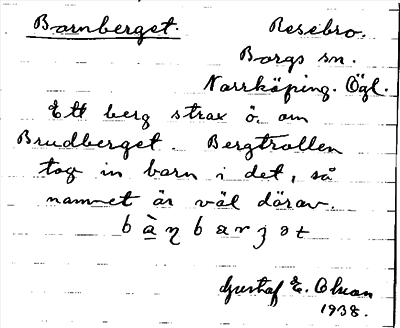 Barnberget. Resebro.
Borgs sn.
Norrköping. Ögl.
Ett berg strax ö. om
Brudberget. Bergtrollen
tog in barn i det, så
namnet är väl därav.
bàɳbarjət
Gustaf E. Olson
1938.